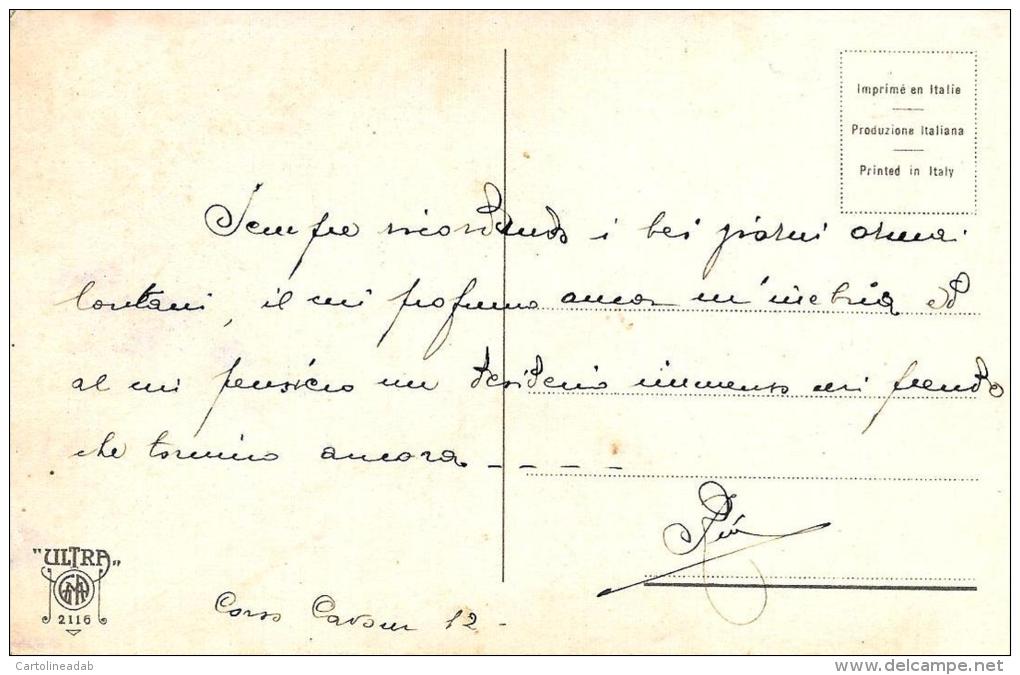 Imprimé en Italie
Produzione Italiana
Printed in Italy
Sempre ricordando i bei giorni ormai
lontani, il mi profumo ancor m'inebria ed
al mi pensiero un desiderio immenso mi prende
che tornino ancora - - - -
"ULTRA"
2116
Corso Cavour 12 -
Cartolineadab
delcampe.net